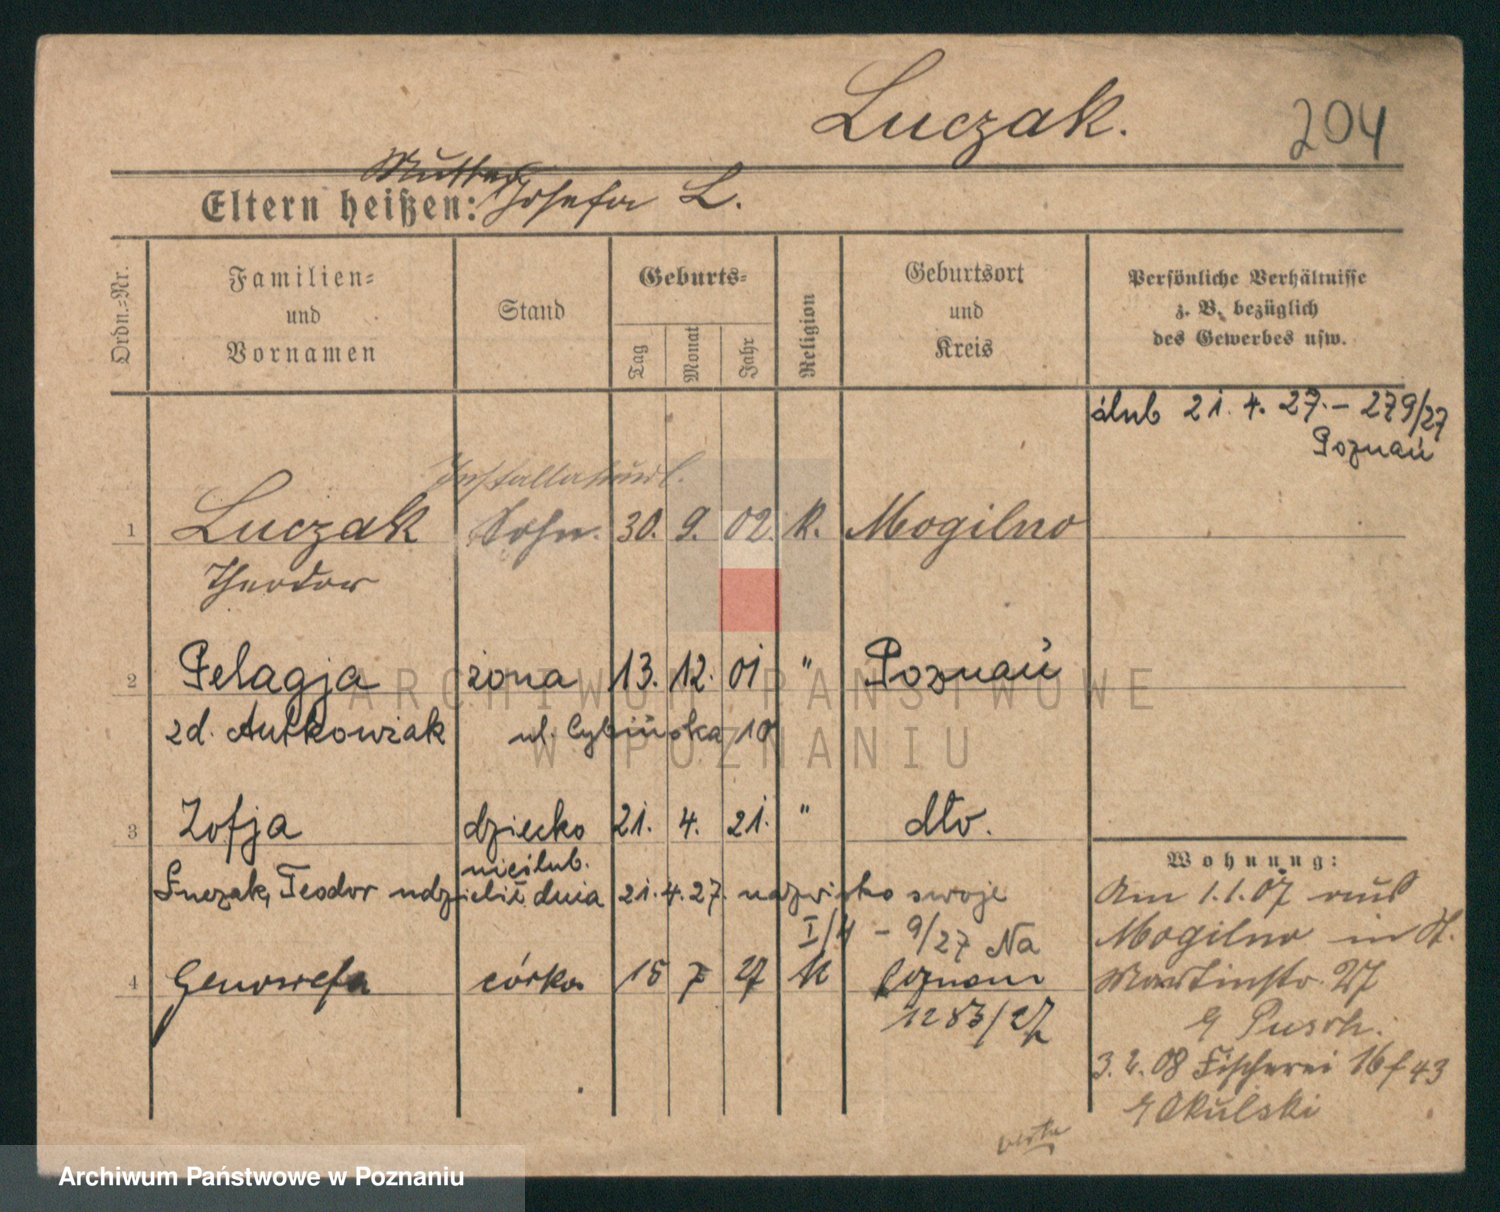 Luczak.
204
Mutter
Eltern heißen: Josefa L.
Ordn.-Nr.
Familien-
und
Vornamen
Stand
Geburts-
Tag
Monat
Jahr
Religion
Geburtsort
und
Kreis
Persönliche Verhältnisse
z. B. bezüglich
des Gewerbes usw.
ślub 21. 4. 27. - 279/27
Poznań
1 Luczak Sohn. 30. 9. 02. K. Mogilno
Theodor
2 Pelagja żona 13. 12. 01 " Poznań
zd. Antkowiak ul. Cybińska 10
3 Zofja dziecko 21. 4. 21. " dto.
nieślub.
Łuczak, Teodor udzielił dnia 21.4.27. nazwisko swoje
I/4 - 9/27 Na
4 Genowefa córka 15 7 27 K Poznań
1283/27
Wohnung:
Am 1.1.07 aus
Mogilno in St.
Martinstr. 27
Pusch.
3. 2. 08 Fischerei 16 f 43
ARCHIWUM PAŃSTWOWE
W POZNANIU
Archiwum Państwowe w Poznaniu